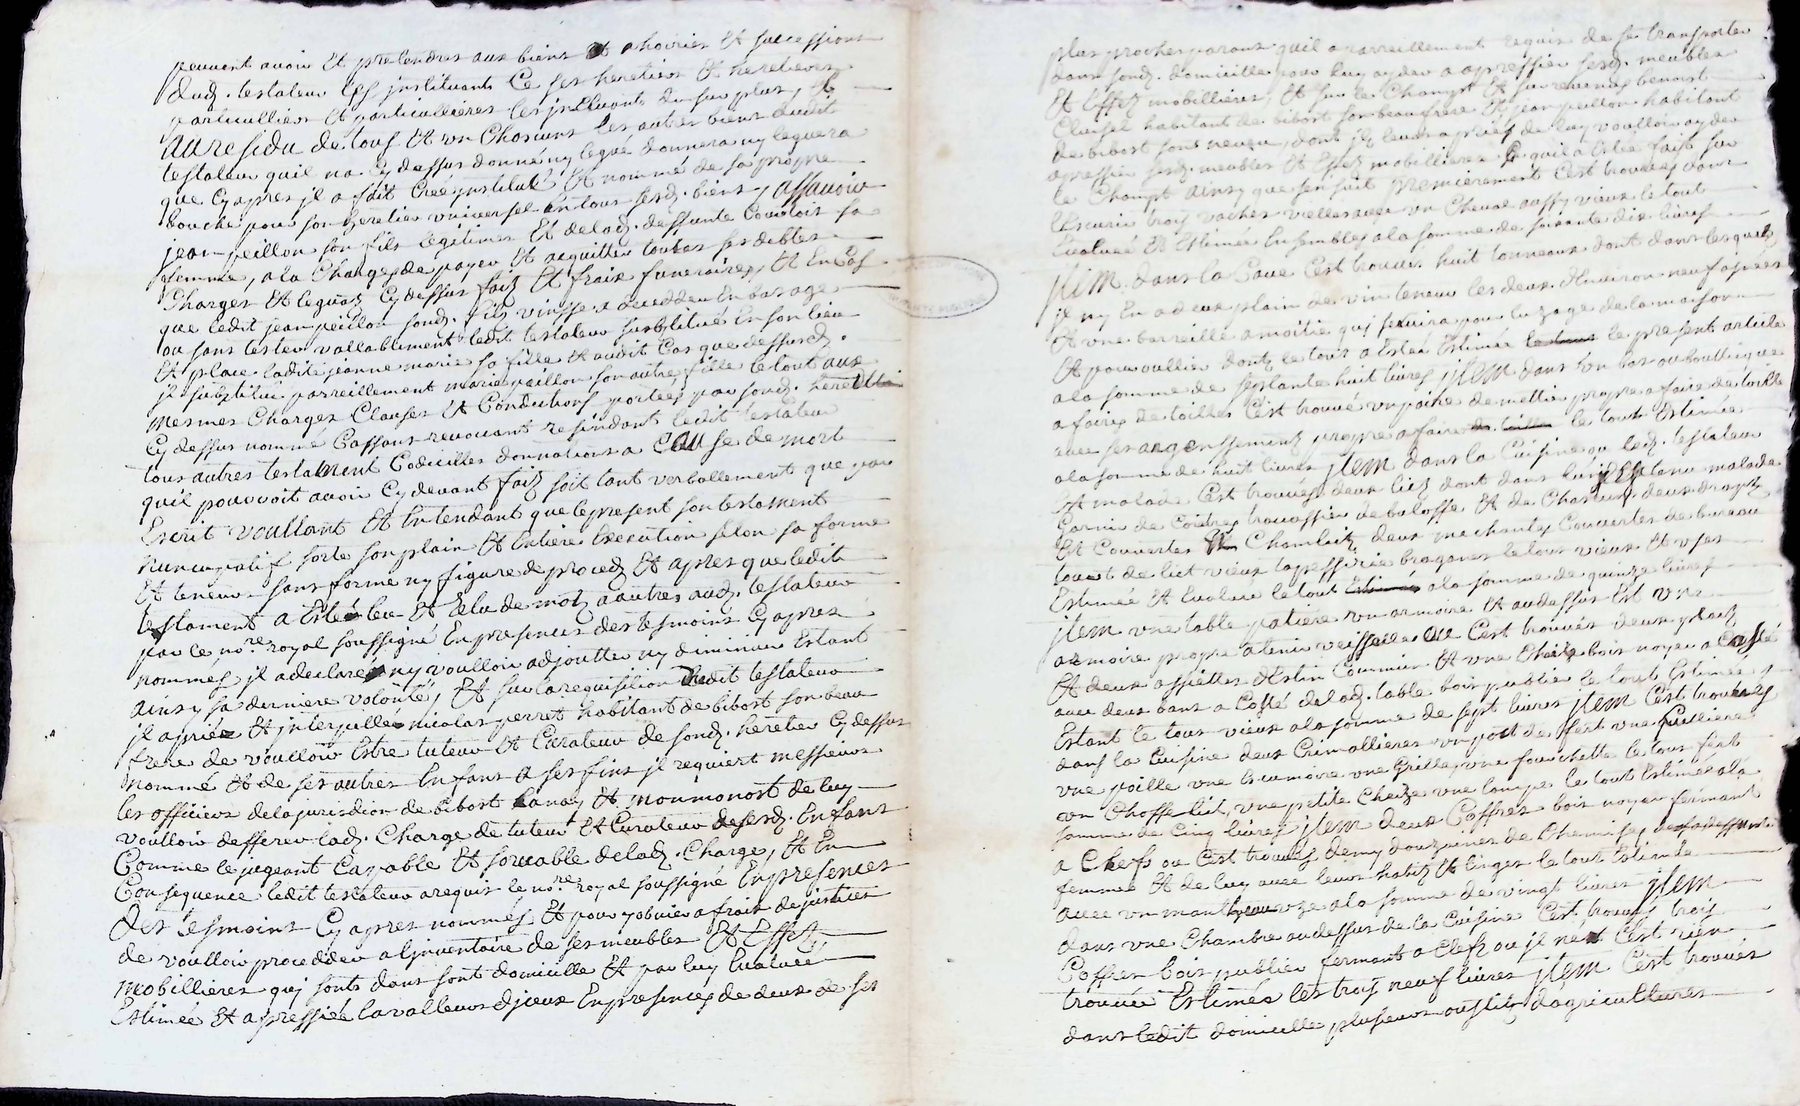 peuvent avoir Et pretendres aux biens Et ahoiries Et successions
dud. testateur les instituants Ce ses heretiers Et heretieres
particulliers Et particullieres les jnstuants du sur plus, Et
au residu de tous Et vn Chascuns les autres biens dudit
testateur quil na Cy dessus donné ny legué donnera ny leguera
que Cy apres jl a fait Creé jnstitué Et nommé de sa propre
bouche pour son heretier vniversel En tous sesd. biens, assavoir
jean peillon son fils legitimes Et de lad. deffunte Courtois sa
femme, a la Charges de payer Et acquitter toutes ses debtes
Charges Et legats Cy dessus faiz Et fraix funeraires, Et En Cas
que ledit jean peillon sond. fils vinsse a decedder En bas age
ou sans tester vallablement ledit testateur substitue En son lieu
Et place ladite jeanne marie sa fille Et audit Cas que dessusd.
jl substitue parreillement marie peillon son autre fille le tout aux
mesmes Charges Clauses Et Conditions portees par sond. heretier
Cy dessus nommé Cassant revocant resindant ledit testateur
tous autres testament Codicilles donnations a Cause de mort
quil pouvoit avoir Cy devant faiz soit tant verballement que par
Escrit voullant Et Entendant que le present son testament
nuncupatif sorte son plain Et Entiere Execution selon sa forme
Et teneur sans forme ny figure de proced Et apres que ledit
testament a Esté leu Et relu de mots a autres aud. testateur
par le no.re royal soussigné En presences des tesmoins Cy apres
nommés jl a declaré ny voulloir adjoutter ny diminuer Estant
ainsy sa derniere volonté, Et sur la requisition dudit testateur
jl a priéz Et jnterpellé nicolas perret habitant de bibost son beau
frere de voulloir Estre tuteur Et Curateur de sond. heretier Cy dessus
nommé Et de ses autres Enfans a ses fins jl requiert messieurs
les officiers de la jurisdion de bibost Et monmonost de luy
voulloir defferer lad. Charge de tuteur Et Curateur desesd. Enfans
Comme le jugeant Capable Et solvable de lad. Charge, Et En
Consequence ledit testateur a requis le no.re royal soussigné En presences
des tesmoins Cy apres nommés Et pour obvier a fraix de justice
de voulloir procedder a l'jnventaire de ses meubles Et Effetz
mobillieres qui sont dans sont domicille Et par luy Evaluée
Estimée Et apressiée la valleurs d'jceux En presences de deux de ses
plus proches parans quil a parreillement requis de se transporter
dans sond. domicille pour luy ayder a apressier sesd. meubles
Et Effetz mobillieres, Et sur le Champt Et survenus benoist
Clusel habitant de bibost son beaufrere Et jean peillon habitant
de bibost sont neveu, dont jl les a priés de luy voulloir ayder
apressier sesd. meubles Et Effetz mobillieres Ce quil a Estée fait sur
le Champt ainsy que sen suit premierement Cest trouvés dans
lescurie trois vaches vielles avec vn Cheval aussy vieux le tout
Evalués Et Estimée Ensembles a la somme de soixante dix livres
jtem dans la Cave Cest trouvés huit tonneaux dont dans lesquels
jl ny En a deux plain de vin teneur les deux Environ neuf asnées
Et vne barreille a moitié qui servira pour luzage de la maison
Et pour oullier dont le tout a Estée Estimée le present article
a la somme de septante huit livres jtem dans son bas ou boutticque
a faire de toilles Cest trouvé vn paire de mettier propre a faire de toille
avec ses agensements propre a faire le tout Estimée
a la somme de huit livres jtem dans la Cuisine ou led. testateur
Est malade Cest trouvés deux lictz dont dans lun jl Est tenu malade
Garnie de Coitres traversier de balosse Et de Chascun deux drapts
Et Couvertes Chamlictz deux mechantes Couvertes de bureau
tours de lict vieux tapisserie bragance le tout vieux Et vses
Estimée Et Evalues le tout a la somme de quinze livres
jtem vne table patiere vn armoire Et audessus Est vne
armoire propre a tenir veisselles ou Cest trouvés deux platz
Et deux assiettes d'Estin Commun Et vne Cheize bois noyer a Costé
avec deux bans a Costé de lad. table bois publier le tout Estimée
Estant le tout vieux a la somme de sept livres jtem Cest trouvés
dans la Cuisine deux Crimallieres vn pott de fert vne Cuilliere
vne poille vne Escumoire vne Grille, vne fourchette le tout fert
vn Choffe lict, vne petite Cheize vne lampe le tout Estimée a la
somme de Cinq livres jtem deux Coffres bois noyer fermant
a Clefs ou Cest trouvés demy douzaines de Chemises de sa deffunte
femme Et de luy avec leurs habits Et linges le tout Estimée
avec vn manteau vze a la somme de vingt livres jtem
dans vne Chambre audessus de la Cuisine Cest trouvés trois
Coffres bois publier fermant a Clefs ou jl ne Cest rien
trouvé Estimés les trois neuf livres jtem Cest trouvés
dans ledit domicille plusieurs oustilz dagricultures